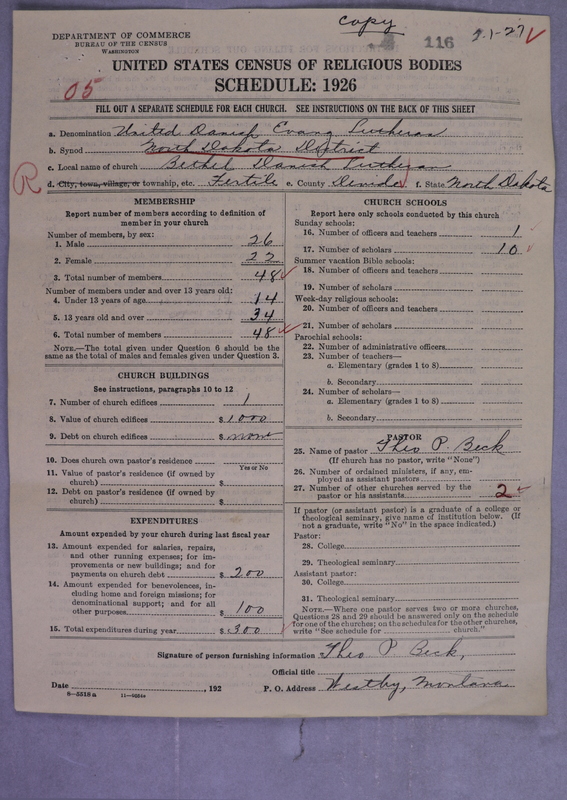 copy
DEPARTMENT OF COMMERCE
BUREAU OF THE CENSUS
WASHINGTON
116
2-1-27
UNITED STATES CENSUS OF RELIGIOUS BODIES
05
SCHEDULE: 1926
FILL OUT A SEPARATE SCHEDULE FOR EACH CHURCH. SEE INSTRUCTIONS ON THE BACK OF THIS SHEET
a. Denomination United Danish Evang Lutheran
b. Synod North Dakota District
c. Local name of church Bethel Danish Lutheran
R
d. City, town, village, or township, etc. Fertile e. County Divide f. State North Dakota
MEMBERSHIP
Report number of members according to definition of
member in your church
Number of members, by sex:
1. Male 26
2. Female 22
3. Total number of members 48
Number of members under and over 13 years old:
4. Under 13 years of age 14
5. 13 years old and over 34
6. Total number of members 48
NOTE.—The total given under Question 6 should be
same as the total of males and females given under Question 3.
CHURCH BUILDINGS
See instructions, paragraphs 10 to 12
7. Number of church edifices 1
8. Value of church edifices $ 1000
9. Debt on church edifices $ none
10. Does church own pastor's residence
Yes or No
11. Value of pastor's residence (if owned by
church) $
12. Debt on pastor's residence (if owned by
church) $
EXPENDITURES
Amount expended by your church during last fiscal year
13. Amount expended for salaries, repairs,
and other running expenses; for im-
provements or new buildings; and for
payments on church debt $ 200
14. Amount expended for benevolences, in-
cluding home and foreign missions; for
denominational support; and for all
other purposes $ 100
15. Total expenditures during year $ 300
CHURCH SCHOOLS
Report here only schools conducted by this church
Sunday schools:
16. Number of officers and teachers 1
17. Number of scholars 10
Summer vacation Bible schools:
18. Number of officers and teachers
19. Number of scholars
Week-day religious schools:
20. Number of officers and teachers
21. Number of scholars
Parochial schools:
22. Number of administrative officers
23. Number of teachers—
a. Elementary (grades 1 to 8)
b. Secondary
24. Number of scholars—
a. Elementary (grades 1 to 8)
b. Secondary
PASTOR
25. Name of pastor Theo P. Beck
(If church has no pastor, write "None")
26. Number of ordained ministers, if any, em-
ployed as assistant pastors
27. Number of other churches served by the
pastor or his assistants 2
If pastor (or assistant pastor) is a graduate of a college or
theological seminary, give name of institution below. (If
not a graduate, write "No" in the space indicated.)
Pastor:
28. College
29. Theological seminary
Assistant pastor:
30. College
31. Theological seminary
NOTE.—Where one pastor serves two or more churches,
Questions 28 and 29 should be answered only on the schedule
for one of the churches; on the schedules for the other churches,
write "See schedule for church."
Signature of person furnishing information Theo P Beck,
Official title
Date , 192 P. O. Address Westby, Montana
8—5518 a